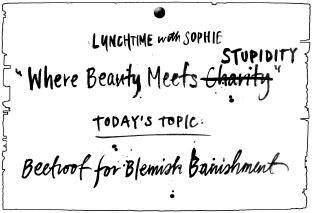 LUNCHTIME with SOPHIE
STUPIDITY
"Where Beauty Meets Charity"
TODAY'S TOPIC:
Beetroot for Blemish Banishment